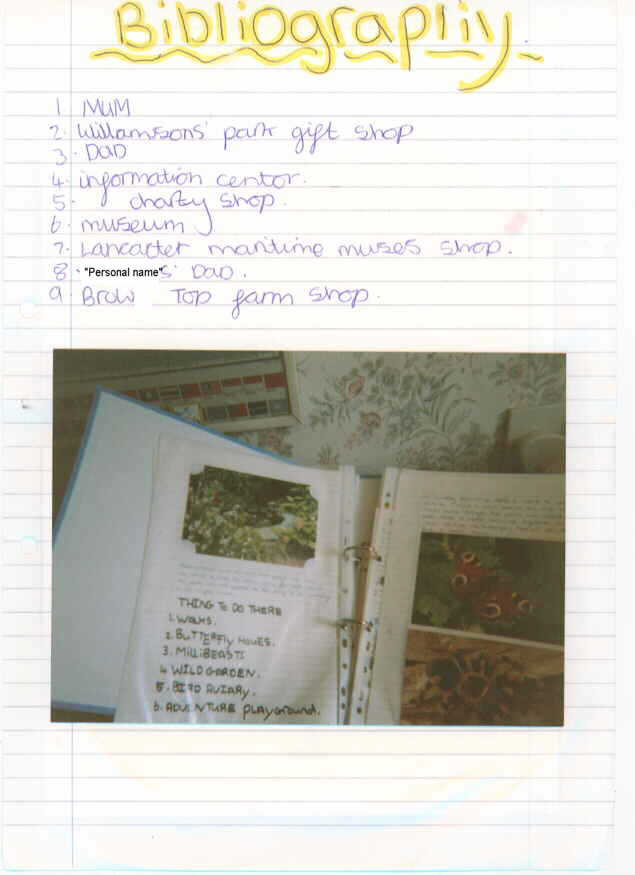 Bibliography.
1 MUM
2. Willamsons' park gift shop
3. DaD
4. information centor.
5. charity shop.
6. museum
7. Lancacter maritime muses shop.
8. "Personal name"s' DaD.
9. Brow Top farm shop.
THING TO DO THERE
1. WALKS.
2. BUTTERFLY HOUES.
3. MilliBEASTS
4. WILD GARDEN.
5. BIRD AVIARY.
6. ADVENTURE playGround.